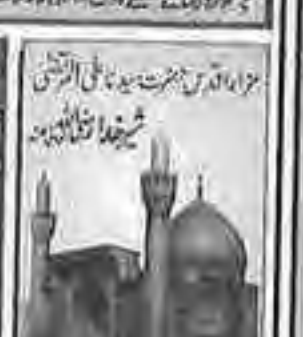 مزار اقدس حضرت سیدنا علی المرتضیٰ
شیر خدا رضی اللہ عنہ